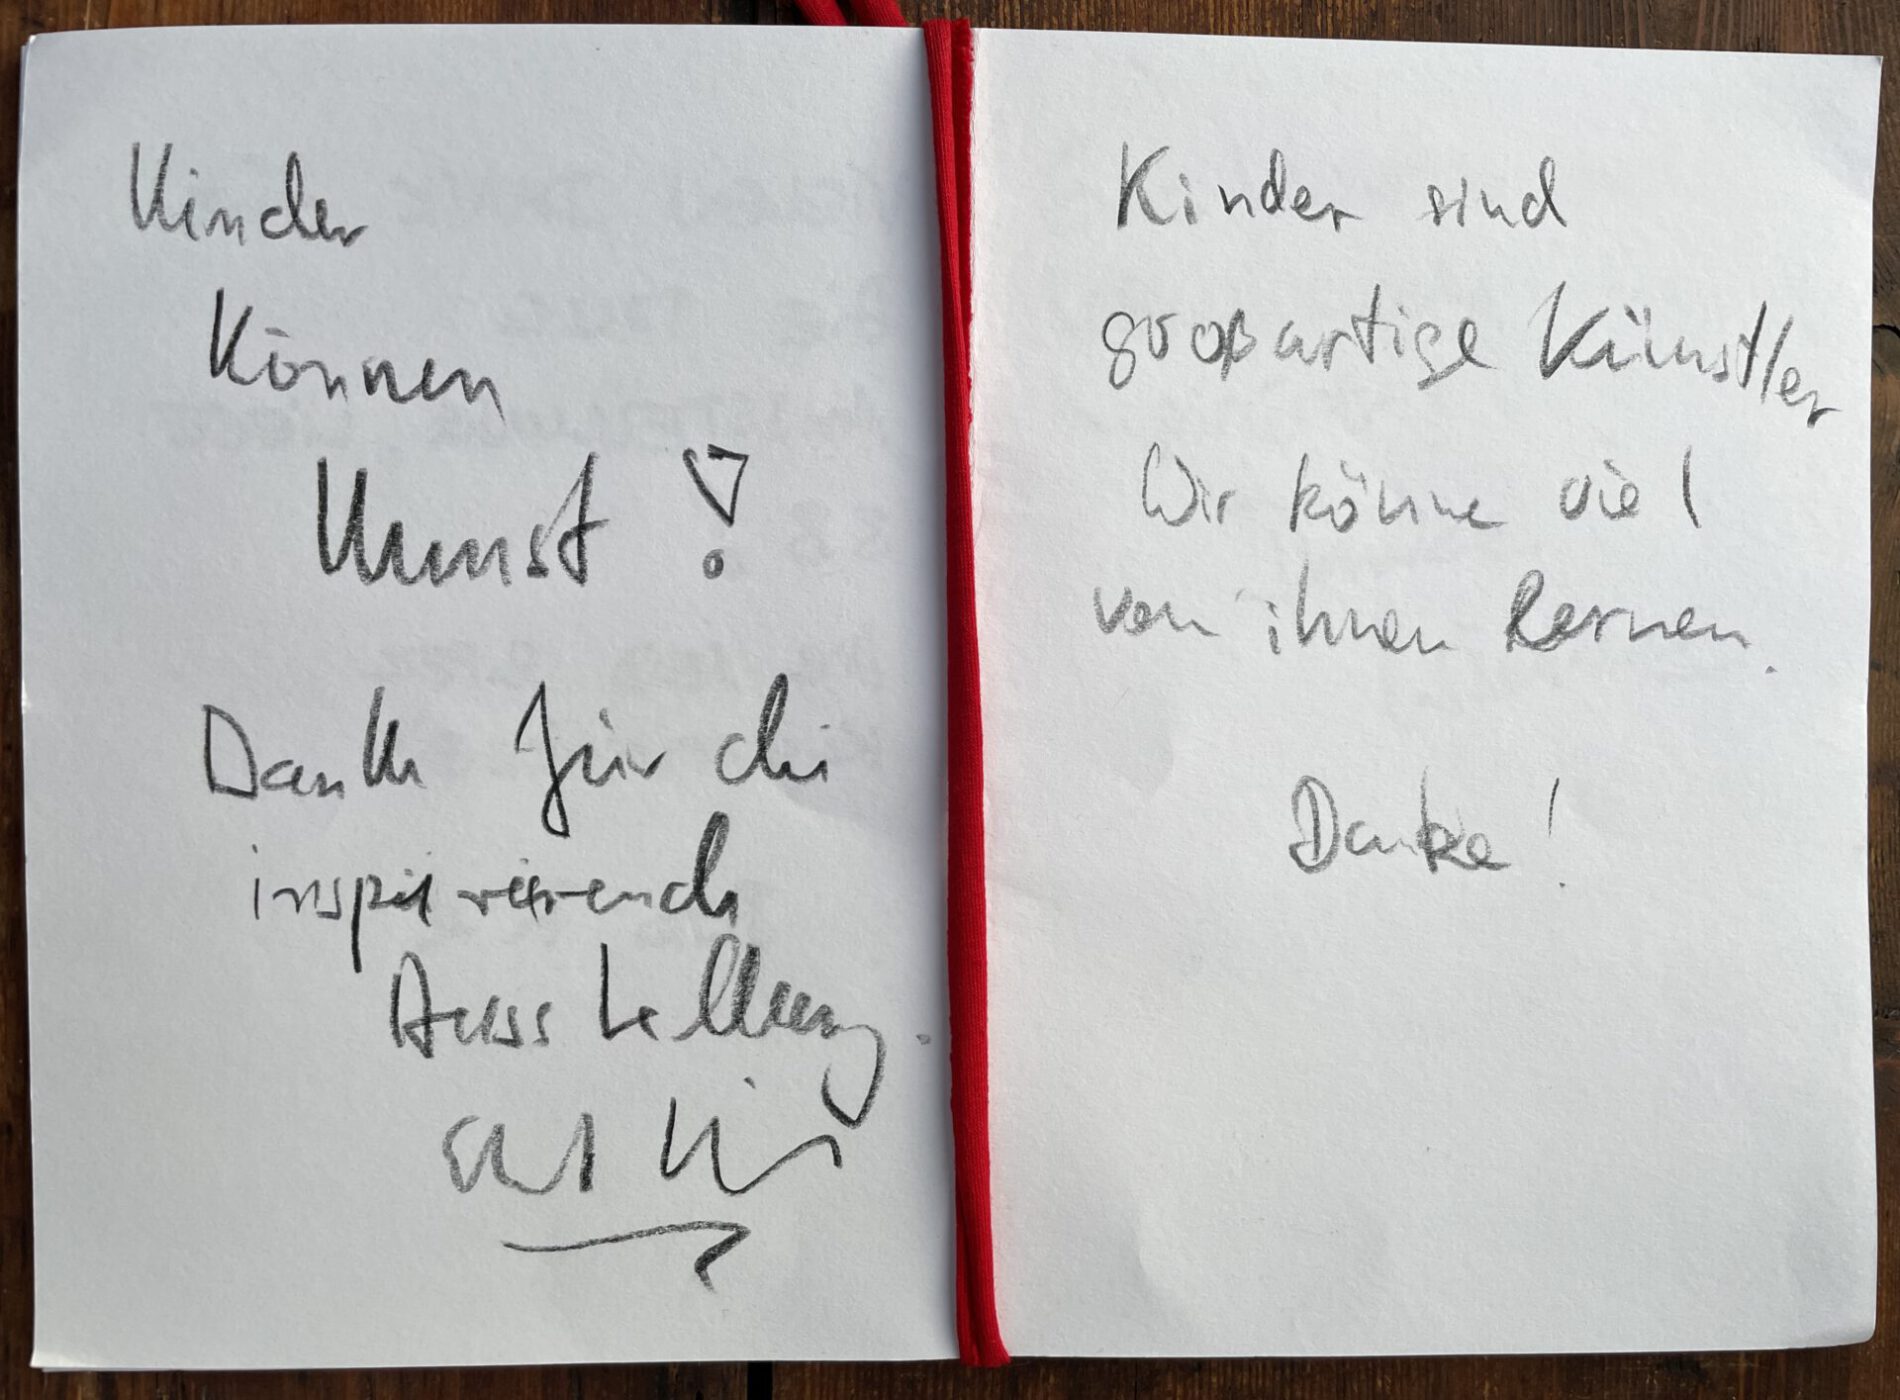 Kinder
Können
Kunst !
Danke für die
inspirierende
Ausstellung.
Kinder sind
großartige Künstler
Wir könne viel
von ihnen lernen.
Danke !